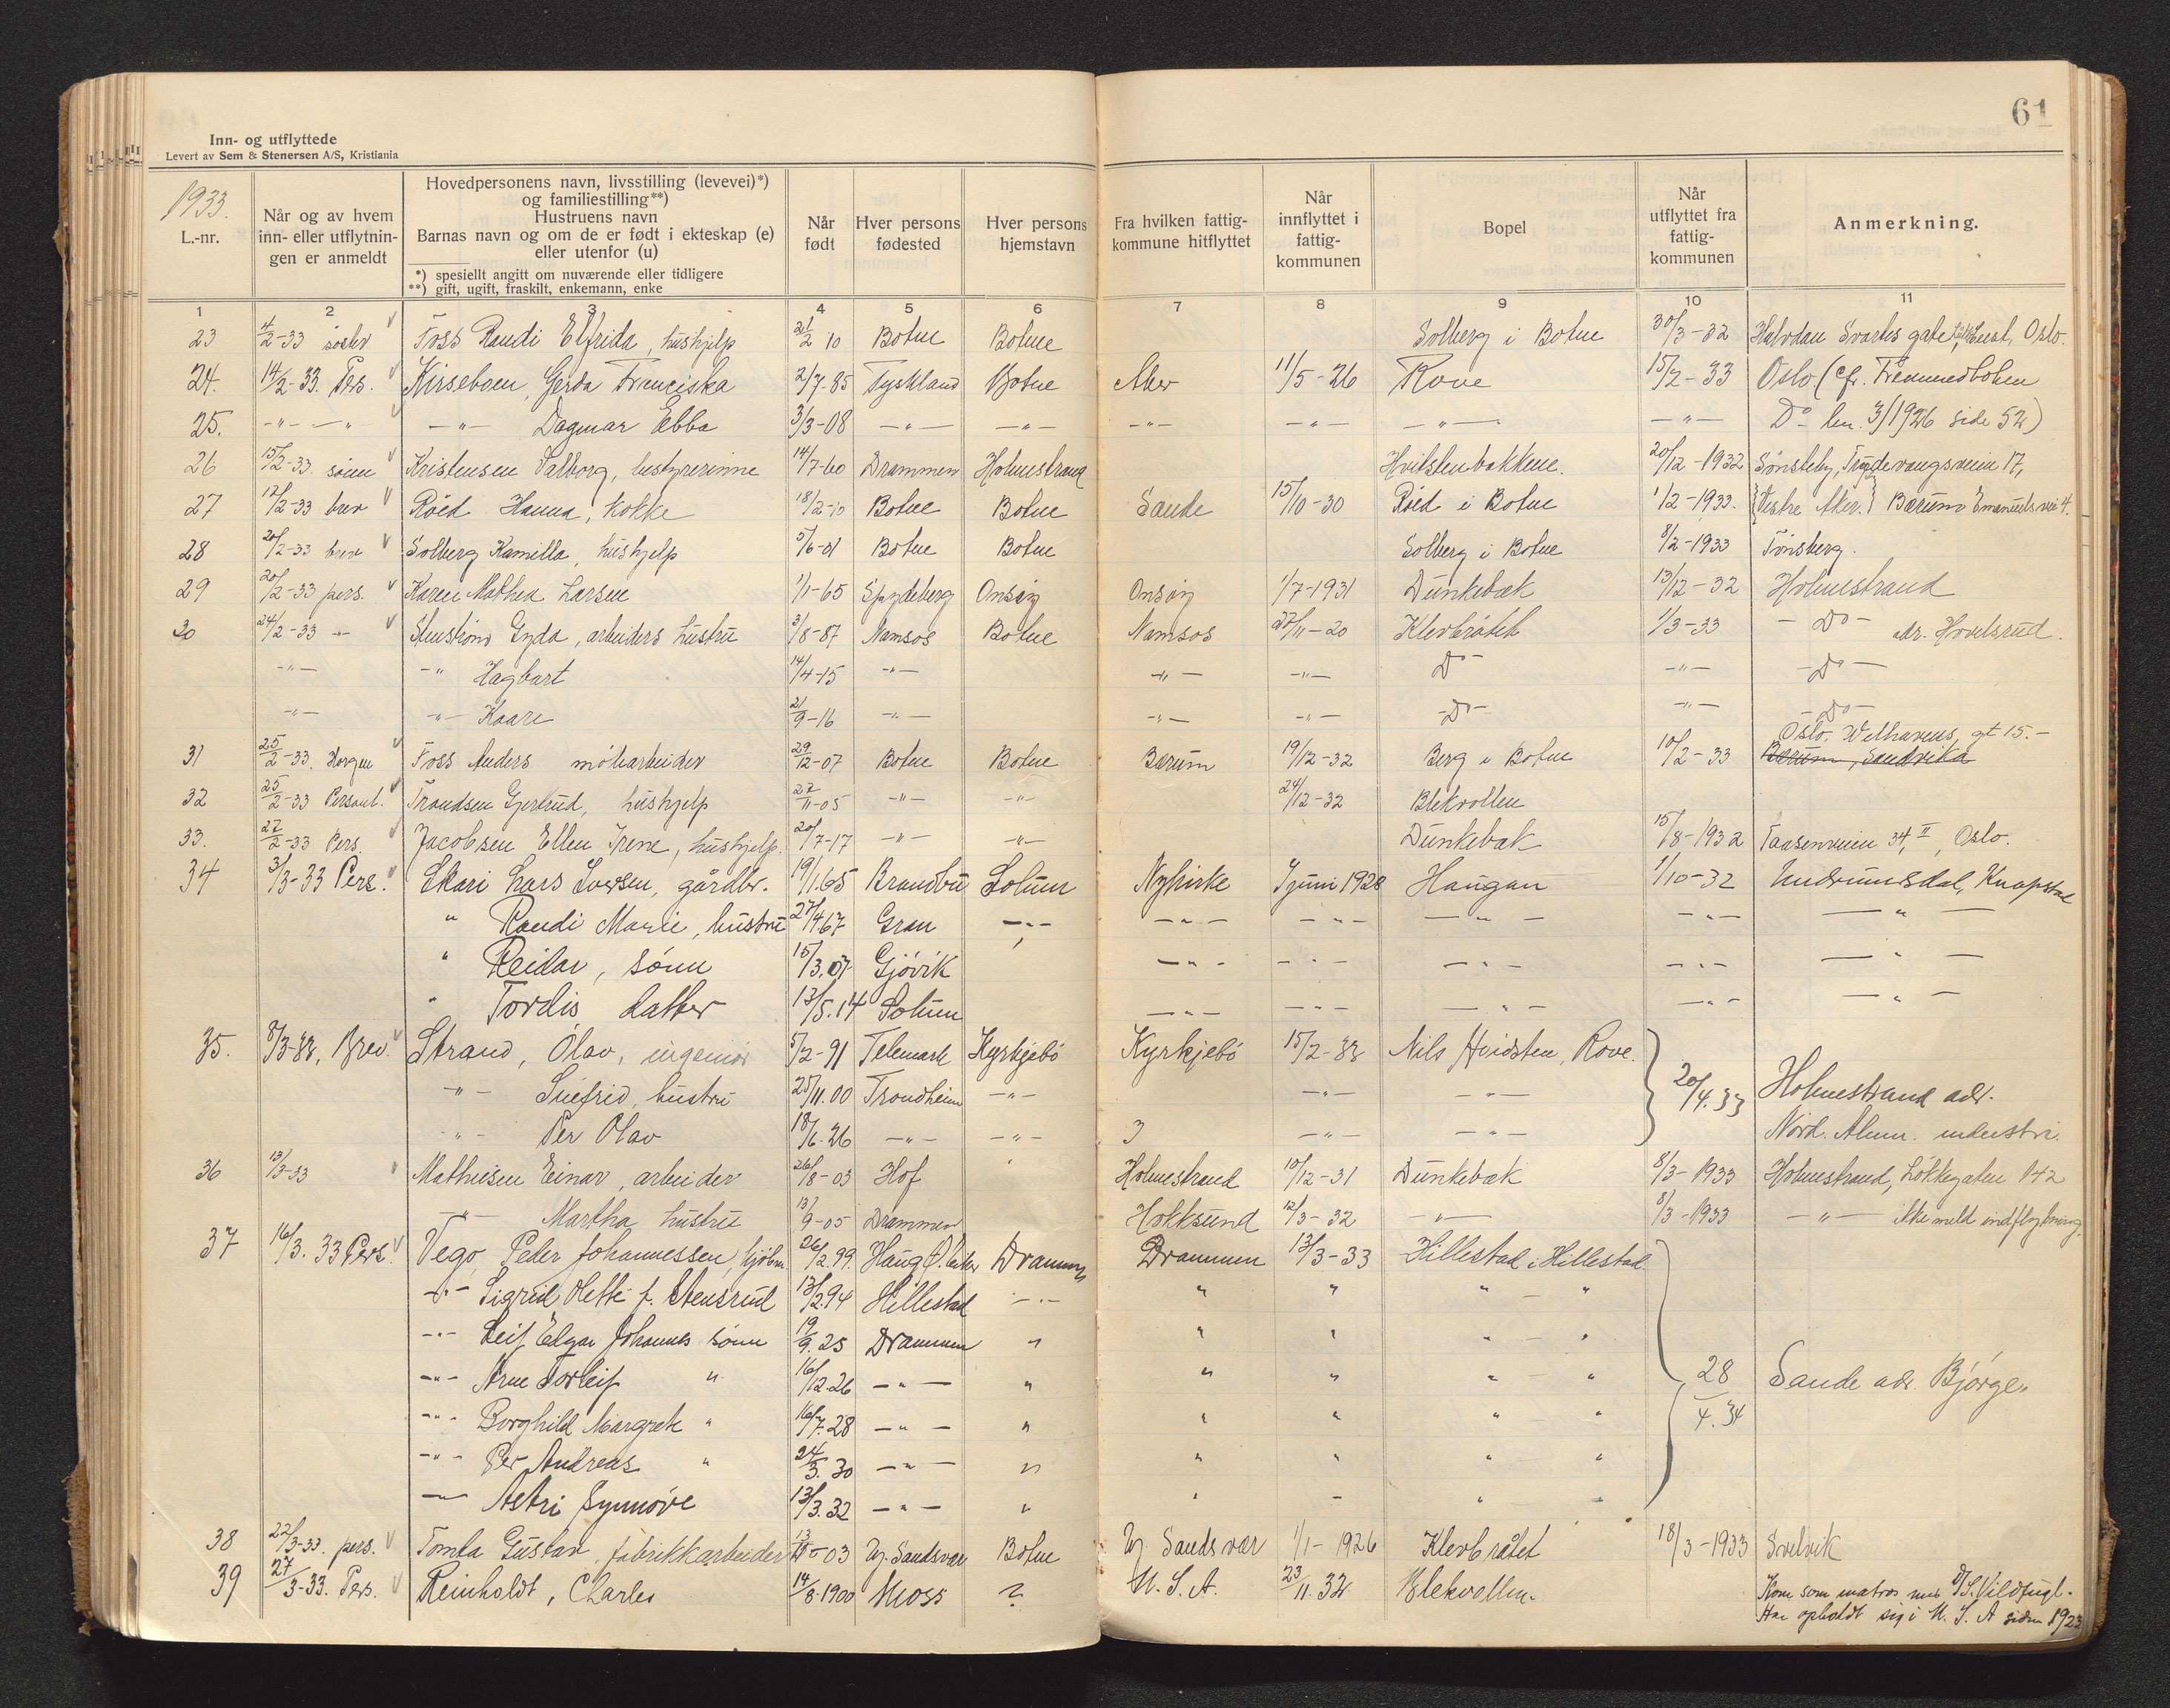 61
Inn- og utflyttede
Levert av Sem & Stenersen A/S, Kristiania
1933.
L.-nr.
Når og av hvem
inn- eller utflytnin-
gen er anmeldt
Hovedpersonens navn, livsstilling (levevei)*)
og familiestilling**)
Hustruens navn
Barnas navn og om de er født i ekteskap (e)
eller utenfor (u)
*) spesiellt angitt om nuværende eller tidligere
**) gift, ugift, fraskilt, enkemann, enke
Når
født
Hver persons
fødested
Hver persons
hjemstavn
Fra hvilken fattig-
kommune hitflyttet
Når
innflyttet i
fattig-
kommunen
Bopel
Når
utflyttet fra
fattig-
kommunen
Anmerkning.
1 2 3 4 5 6 7 8 9 10 11
23 4/2-33 Foss Randi Elfrida, hushjelp 21/2 10 Botne Botne Solberg i Botne 30/3-32 Halvdan Svartes gate Oslo.
24. 14/2-33. Pers. Kirseboen, Gerda Franciska 2/7-85 Tyskland Botne Aker 11/5-26 Rove 15/2-33 Oslo (cfr. Fremmedboken
25. -"- -"- -"- Dagmar Ebba 3/3-08 -"- -"- -"- -"- -"- -"- Do lnr. 3/1926 side 52)
26 15/2-33. sønn Kristensen Valborg, bestyrerinne 14/7-60 Drammen Holmestrand Hvitstenbakkene. 20/12-1932 Sønsteby, Trudevangsveien 17,
27 12/2-33 brev Røed Hanna, kokke 18/2-10 Botne Botne Sande 15/10-30 Røed i Botne 1/2-1933. {Vestre Aker.} Bærum Emanuelsvei 4.
28 20/2-33 brev Solberg Kamilla, hushjelp 5/6-01 Botne Botne Solberg i Botne 8/2-1933 Tønsberg.
29 20/2-33 pers. Karen Mathea Larsen 1/1-65 Spydeberg Onsøy Onsøy 1/7-1931 Dunkebæk 13/12-32 Holmestrand
30 24/2-33 -"- Stenstrøm Gyda, arbeiders hustru 3/8-87 Namsos Botne Namsos 27/11-20 Klevbråtet 1/3-33 -Do- adr. Hvoelsrud.
-"- -"- Hagbart 14/4-15 -"- -"- -"- Do- -"- -Do-
-"- -"- Kaare 21/9-16 -"- -"- -"- -Do- -"- -Do-
Oslo. Welhavens gt 15.-
31 25/2-33. Horgen Foss Anders møllearbeider 29/12-07 Botne Botne Bærum 19/12-32 Berg i Botne 10/2-33 Bærum, Sandvika
32 25/2-33 Personl. Trondsen Gjertrud, hushjelp 27/11-05 -"- -"- 24/12-32 Blekvollen
33. 27/2-33 Pers. Jacobsen Ellen Irene, hushjelp. 20/7-17 -"- -"- Dunkebæk 15/8-1932 Taasenveien 34, II, Oslo.
34 3/3-33 Pers. Skari Lars Iversen, gårdbr. 19/1.65 Brandbu Solum Nykirke 9 juni 1928 Haugan 1/10-32 Undrumsdal, Knapstad
" Randi Marie, hustru 27/4 67 Gran -"- -"- -"- -"- -"- -"-
" Reidar, sønn 15/3.07 Gjøvik -"- -"- -"- -"- -"-
" Tordis datter 13/5.14 Solum -"- -"- -"- -"- -"-
35. 8/3-33, Brev. Strand, Olav, ingeniør 5/2-91 Telemark Kyrkjebø Kyrkjebø 15/2-33 Nils Hvidsten, Rove.
-"- hustru 25/11.00 Trondheim -"- -"- -"- 20/4.33 Holmestrand adr.
-"- Per Olav 18/6.26 -"- -"- -"- -"- Nord. Alum. industri.
36 13/3-33 Mathisen Einar, arbeider 26/8-03 Hof Holmestrand 10/12-31 Dunkebæk 8/3-1933 Holmestrand, Løkkegaten 142
-"- Martha hustru 13/9-05 Drammen Hokksund 12/3-32 -"- 8/3-1933 -"- ikke meld indflytning.
37 16/3.33 Pers. Vego, Peder Johannessen, kjøbm. 26/2.99. Haug Ø. Eiker Drammen Drammen 13/3-33 Hillestad i Hillestad
-"- Sigrid Olette f. Stensrud 13/2.94 Hillestad -"- " " " "
-"- Leif Edgar Johannes sønn 19/9.25 Drammen " " " " "
-"- Arne Torleif " 16/12.26 -"- " " " " " 28/4.34 Sande adr. Bjørge.
-"- Borghild Margrete " 16/7.28 -"- " " " " "
-"- Per Andreas " 24/3.30 -"- " " " " "
-"- Astri Synnøve 13/3.32 -"- " " " " "
38 22/3-33. pers. Tomta Gustav, fabrikkarbeider 13/10-03 Y. Sandsvær Botne Y. Sandsvær 1/1-1926 Klevbråtet 18/3-1933 Svelvik
39 27/3-33. Pers. Reinholdt, Charles 14/8-1900 Moss ? U.S.A. 23/11.32 Blekvollen. Kom som matros med D/S. Vildfugl.
Har opholdt sig i U.S.A siden 1923